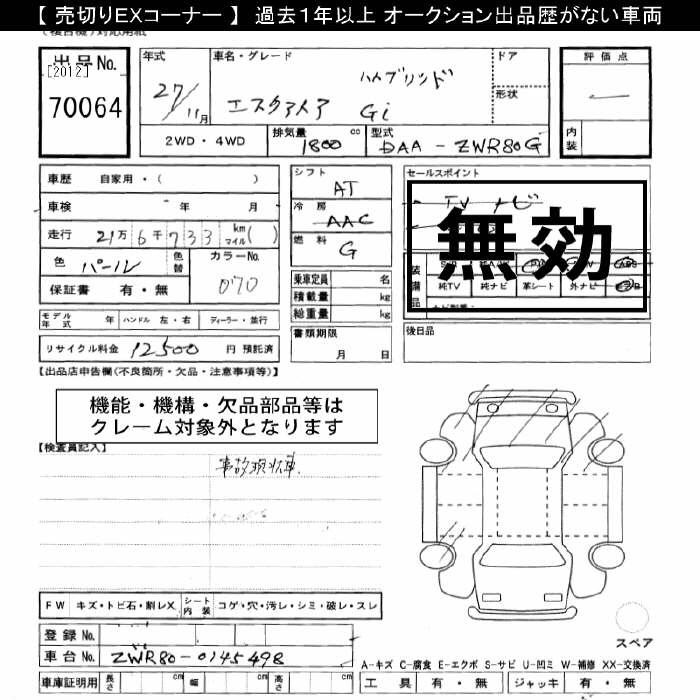 【 売切りEXコーナー 】 過去1年以上 オークション出品歴がない車両
出品No.
[2012]
70064
年式 27/11月
車名・グレード ハイブリッド
エスクァイア Gi
ドア
形状
評価点
内装
2WD・4WD
排気量 1800 cc
型式 DAA-ZWR80G
車歴 自家用・( )
車検 年 月
走行 21万6千733 km マイル( )
色 パール 色替
カラーNo. 070
保証書 有・無
シフト AT
冷房 AAC
燃料 G
乗車定員 名
積載量 kg
総重量 kg
書類期限
月 日
セールスポイント
TV ナビ
無効
装備品
純TV 純ナビ 革シート 外ナビ
後日品
モデル年式 年 ハンドル 左・右 ディーラー・並行
リサイクル料金 12500 円 預託済
【出品店申告欄(不良箇所・欠品・注意事項等)】
機能・機構・欠品部品等は
クレーム対象外となります
【検査員記入】
事故現状車
FW キズ・トビ石・割レX シート内装 コゲ・穴・汚レ・シミ・破レ・スレ
登録No.
車台No. ZWR80-0145498
車庫証明用 長さ cm 幅 cm 高さ cm
スペア
A-キズ C-腐食 E-エクボ S-サビ U-凹ミ W-補修 XX-交換済
工具 有・無 ジャッキ 有・無